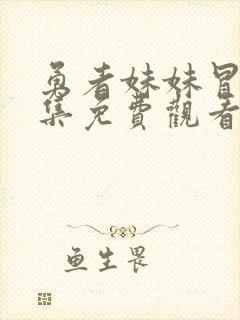 勇者妹妹冒
集免費觀看
鱼生畏